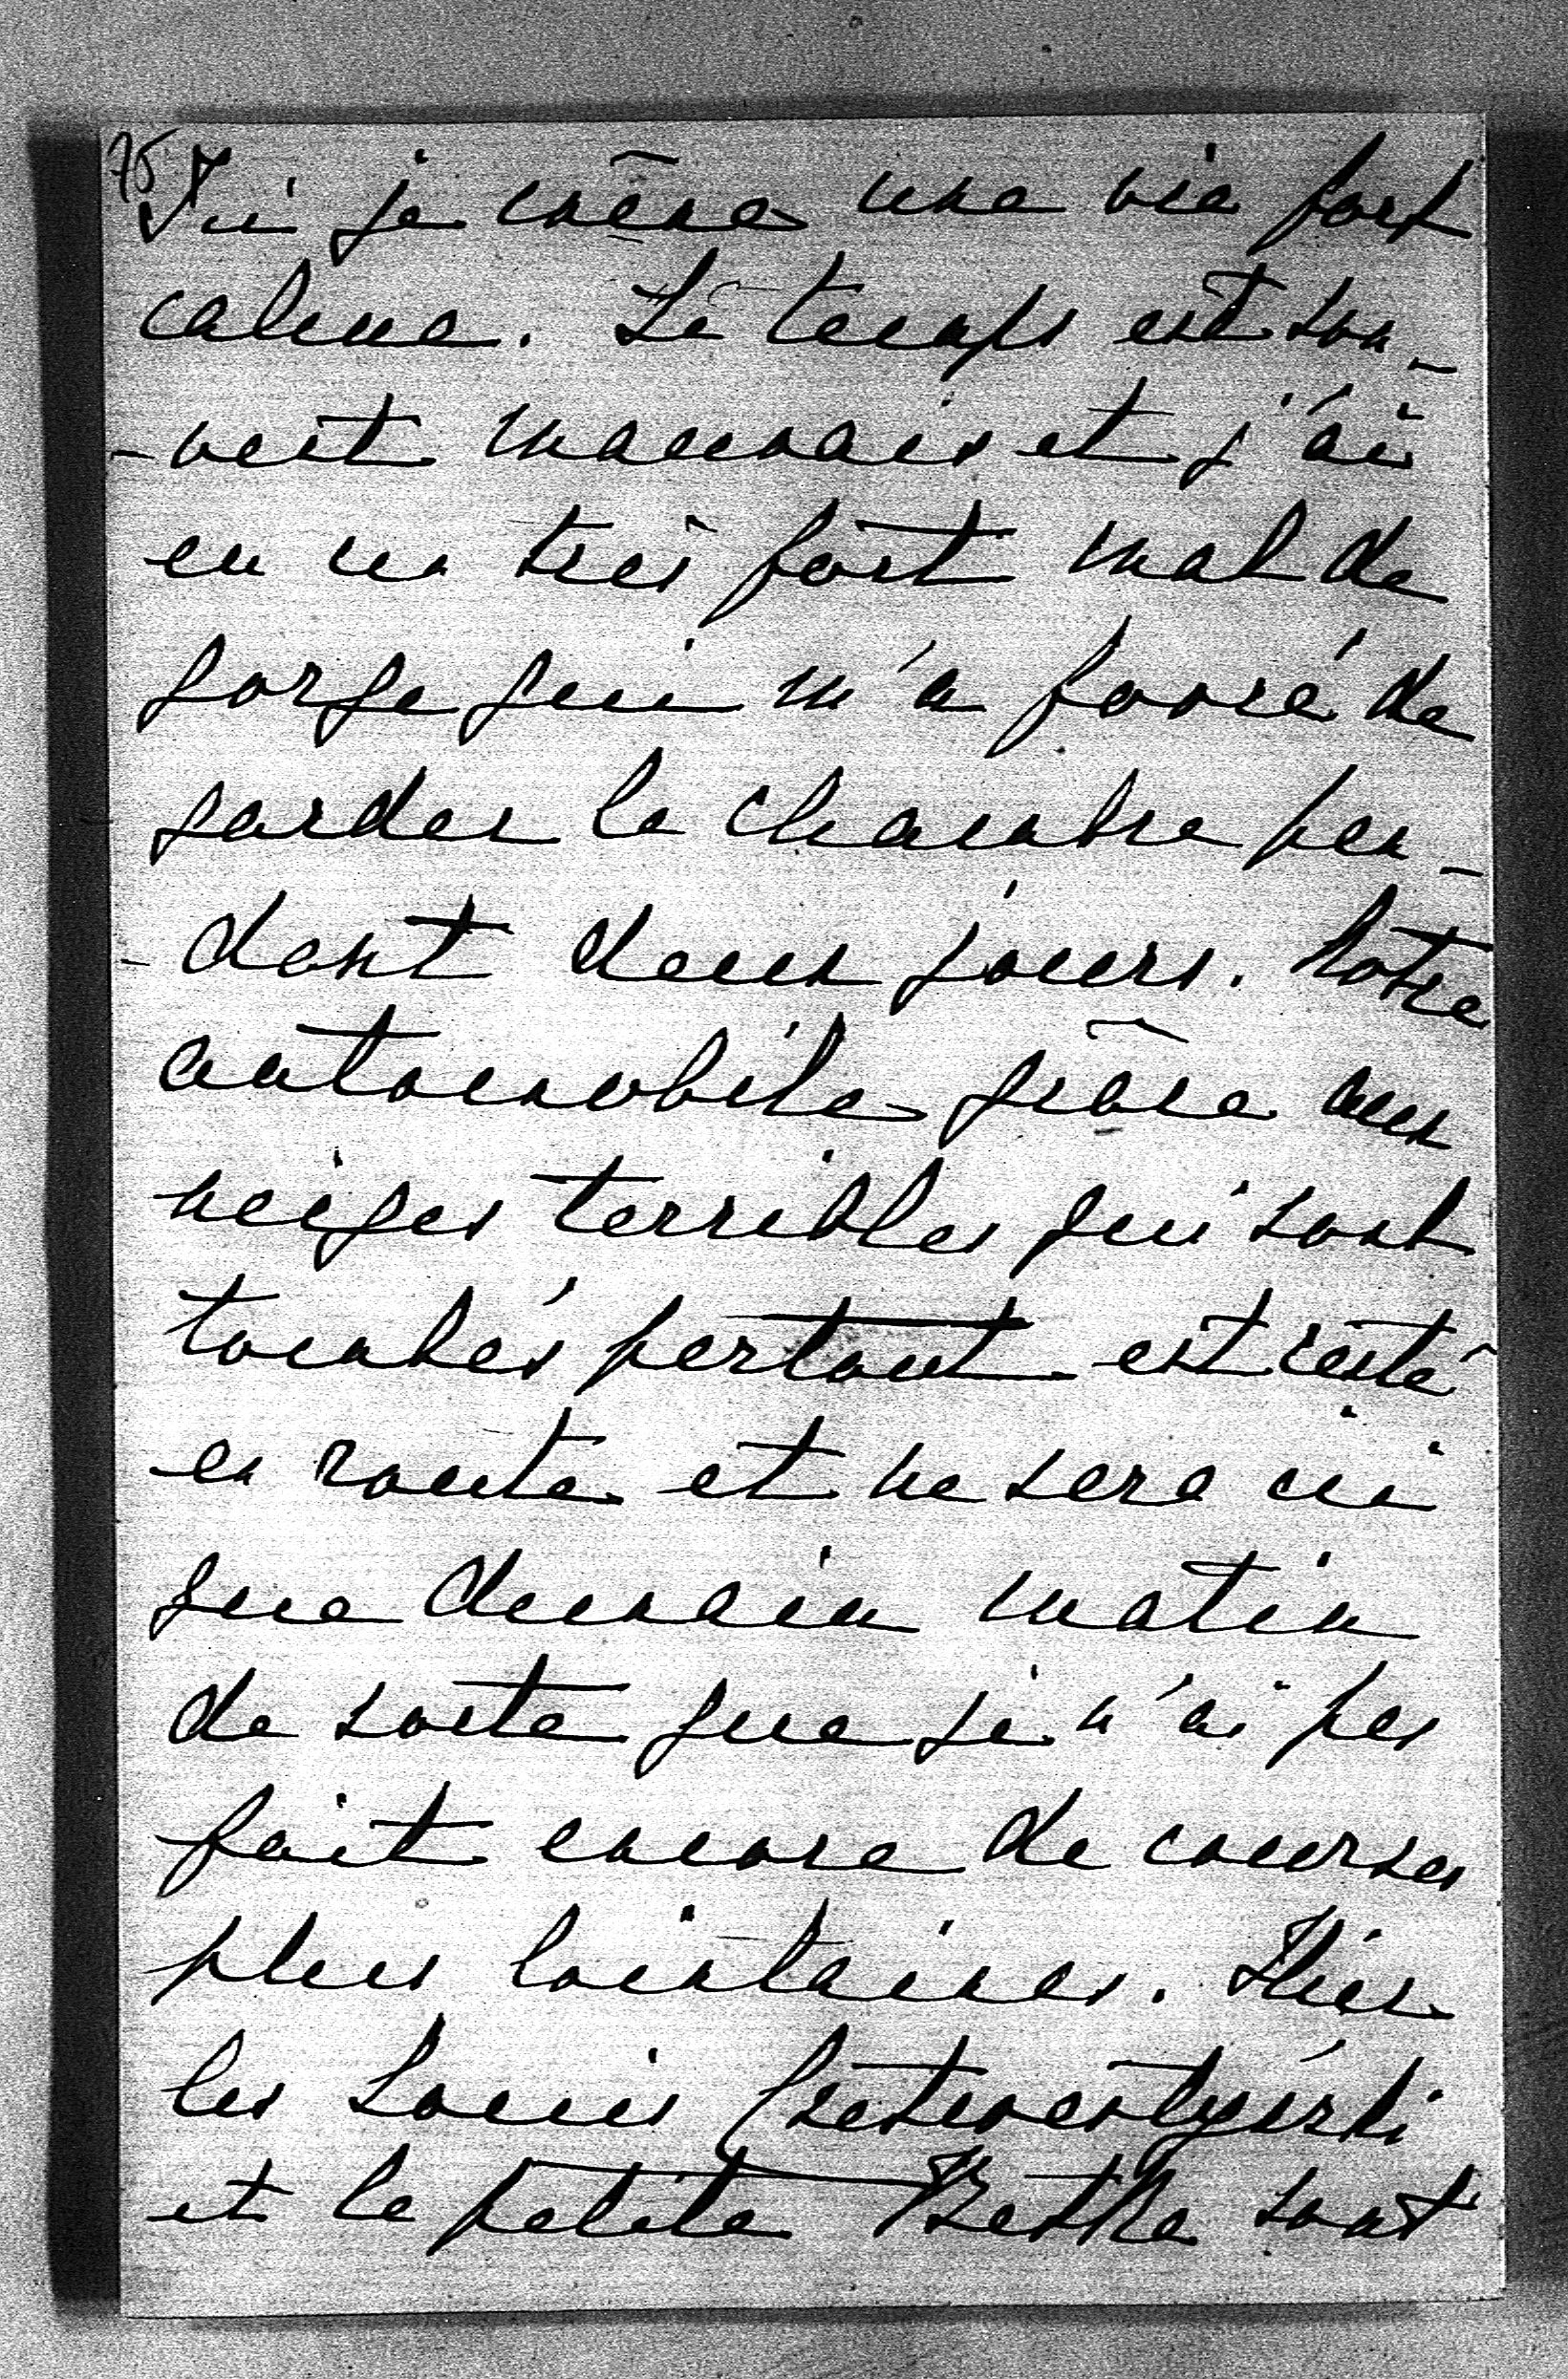 75
Ici je mène une vie fort
calme. Le temps est sou-
-vent mauvais et j'ai
eu un très fort mal de
gorge qui m'a forcé de
garder la chambre pen-
-dant deux jours. Notre
automobile grâce aux
neiges terribles qui sont
tombés partout est resté
en route et ne sera ici
que demain matin
de sorte que je n'ai pas
fait encore de courses
plus lointaines. Hier
les Louis
et la petite sont